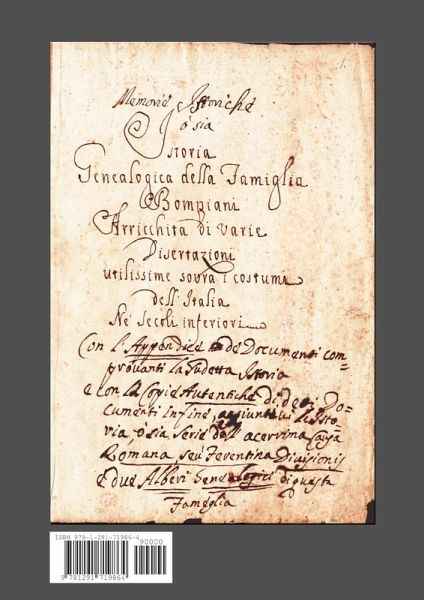 1.
Memorie Istoriche
ó sia
Istoria
Genealogica della Famiglia
Bompiani
Arricchita di varie
Disertazioni
utilissime sovra i costumi
dell'Italia
Ne' secoli inferiori
Con l'Appendice de Documenti com=
provanti la sudetta Istoria
e con le Copie Autentiche di detti Do=
cumenti infine, aggiuntavi la Isto=
ria, ó sia Serie dell' acervina Causa
Romana seu Feventina Divisionis
e due Alberi Genealogici di questa
Famiglia
ISBN 978-1-291-71986-4
90000
9 781291 719864